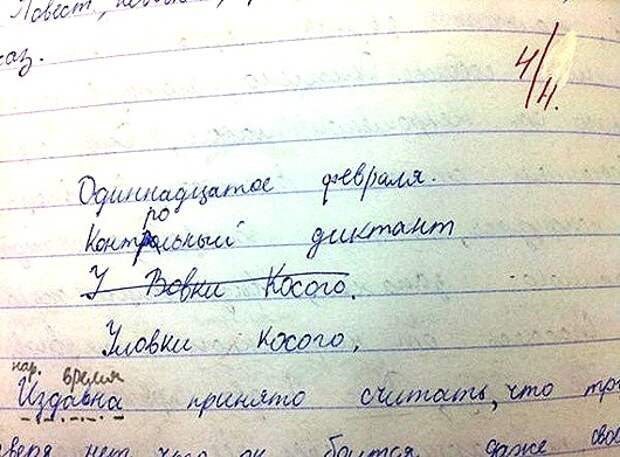 Повест,
каз.
4/4.
Одиннадцатое февраля.
ро
Контрольный диктант
У Вовки Косого.
Уловки косого.
нар. время
Издавна принято считать, что
зверя нет, чего он боится даже